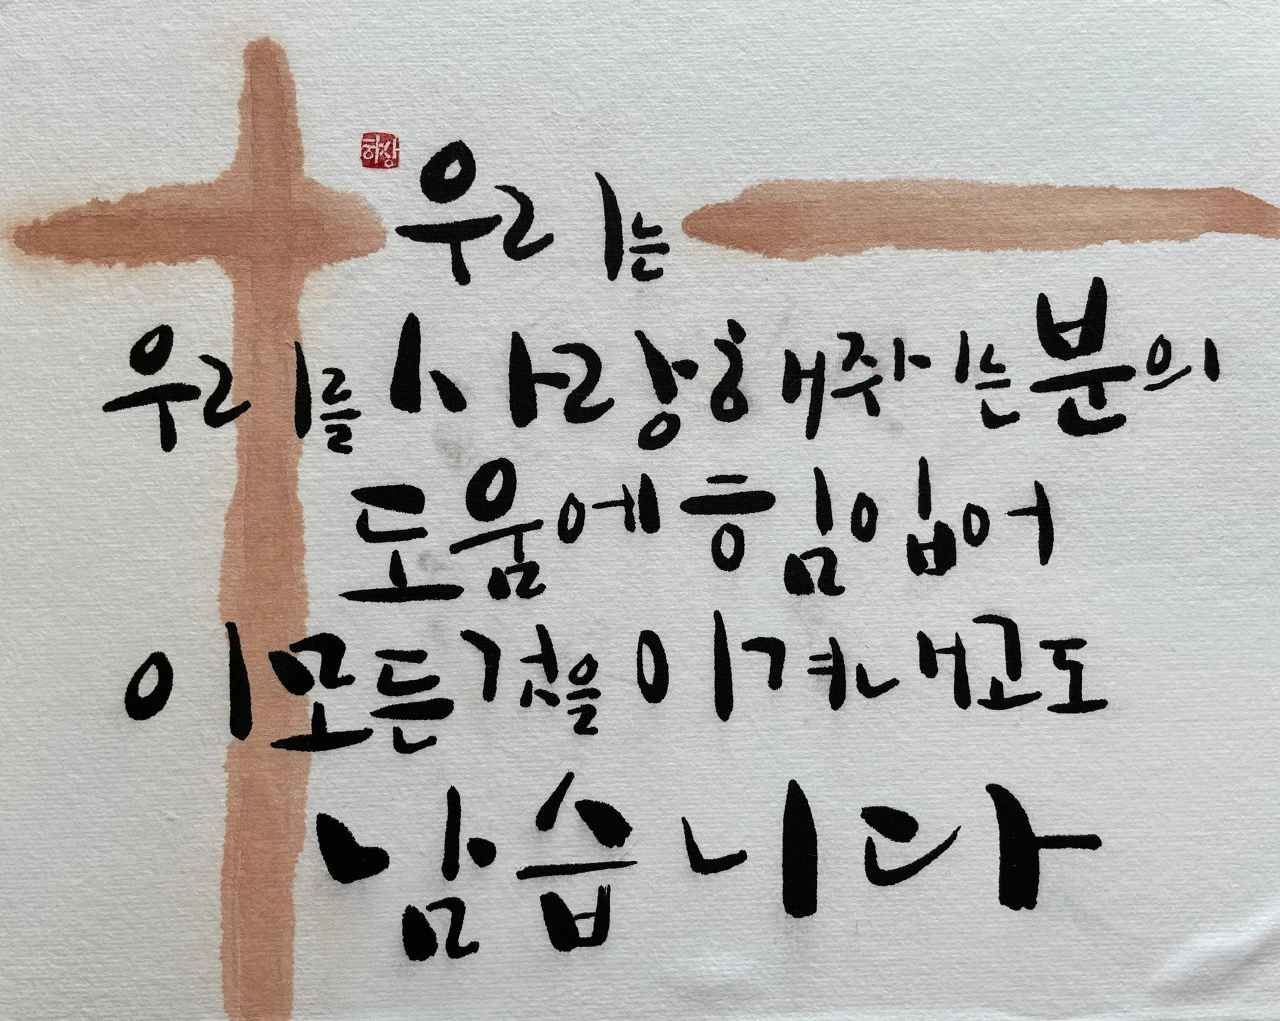 하상
우리는
우리를 사랑해 주시는 분의
도움에 힘입어
이 모든 것을 이겨내고도
남습니다